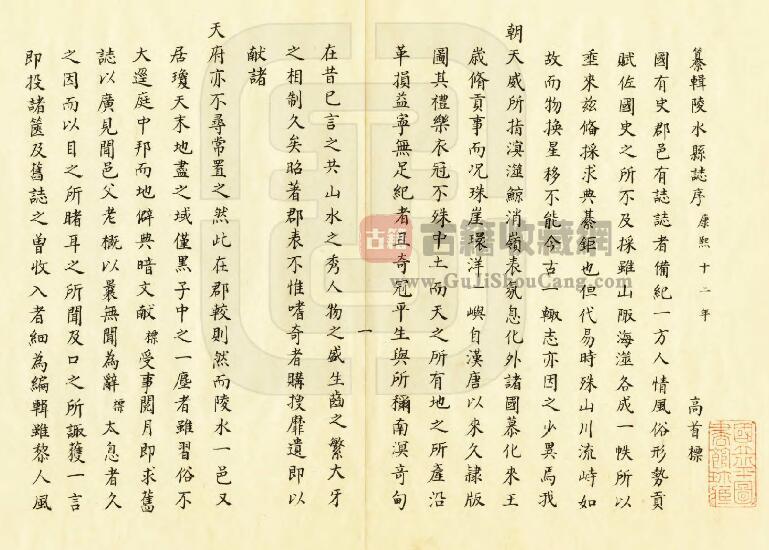 纂輯陵水縣誌序 康熙十二年 高首標
國有史郡邑有誌誌者備紀一方人情風俗形勢貢
賦佐國史之所不及採雖山陬海澨各成一帙所以
垂來茲脩採求典綦鉅也但代易時殊山川流峙如
故而物換星移不能今古一轍志亦因之少異焉我
朝天威所指滇澨鯨消嶺表氛息化外諸國慕化來王
歲脩貢事而况珠崖環洋一嶼自漢唐以來久隷版
圖其禮樂衣冠不殊中土而天之所有地之所產沿
革損益寧無足紀者且奇冠平生與所稱南溟奇甸
在昔已言之共山水之秀人物之盛生齒之繁大牙
之相制久矣昭著郡表不惟嗜奇者購搜靡遺即以
献諸
天府亦不尋常置之然此在郡較則然而陵水一邑又
居瓊天末地盡之域僅黑子中之一塵者雖習俗不
大遥庭中邦而地僻典暗文献標受事閱月即求舊
誌以廣見聞邑父老概以曩無聞為辭標太息者久
之因而以目之所睹耳之所聞及口之所諏獲一言
即投諸篋及舊誌之曽收入者細為編輯雖黎人風
一
古籍 古籍收藏网
www.GuJiShouCang.com